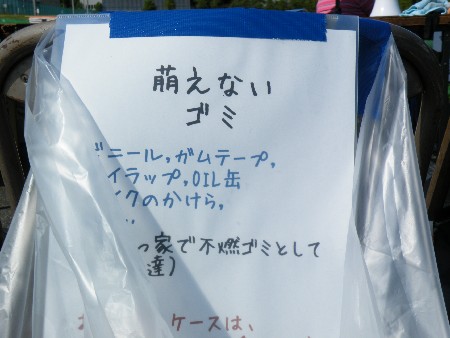 萌えない
ゴミ
ニール, ガムテープ,
イラップ, OIL缶
イクのかけら,
っ家で不燃ゴミとして
達)
ケースは、